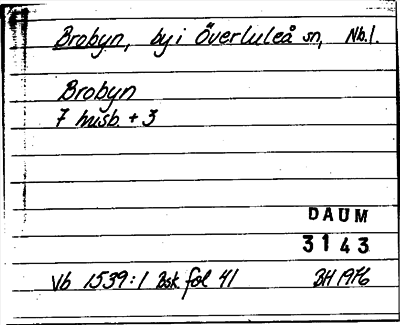 Brobyn, by i Överluleå sn, Nb.l.
Brobyn
7 husb. + 3
DAUM
3143
Vb 1539:1 Bsk fol 41 BH 1976